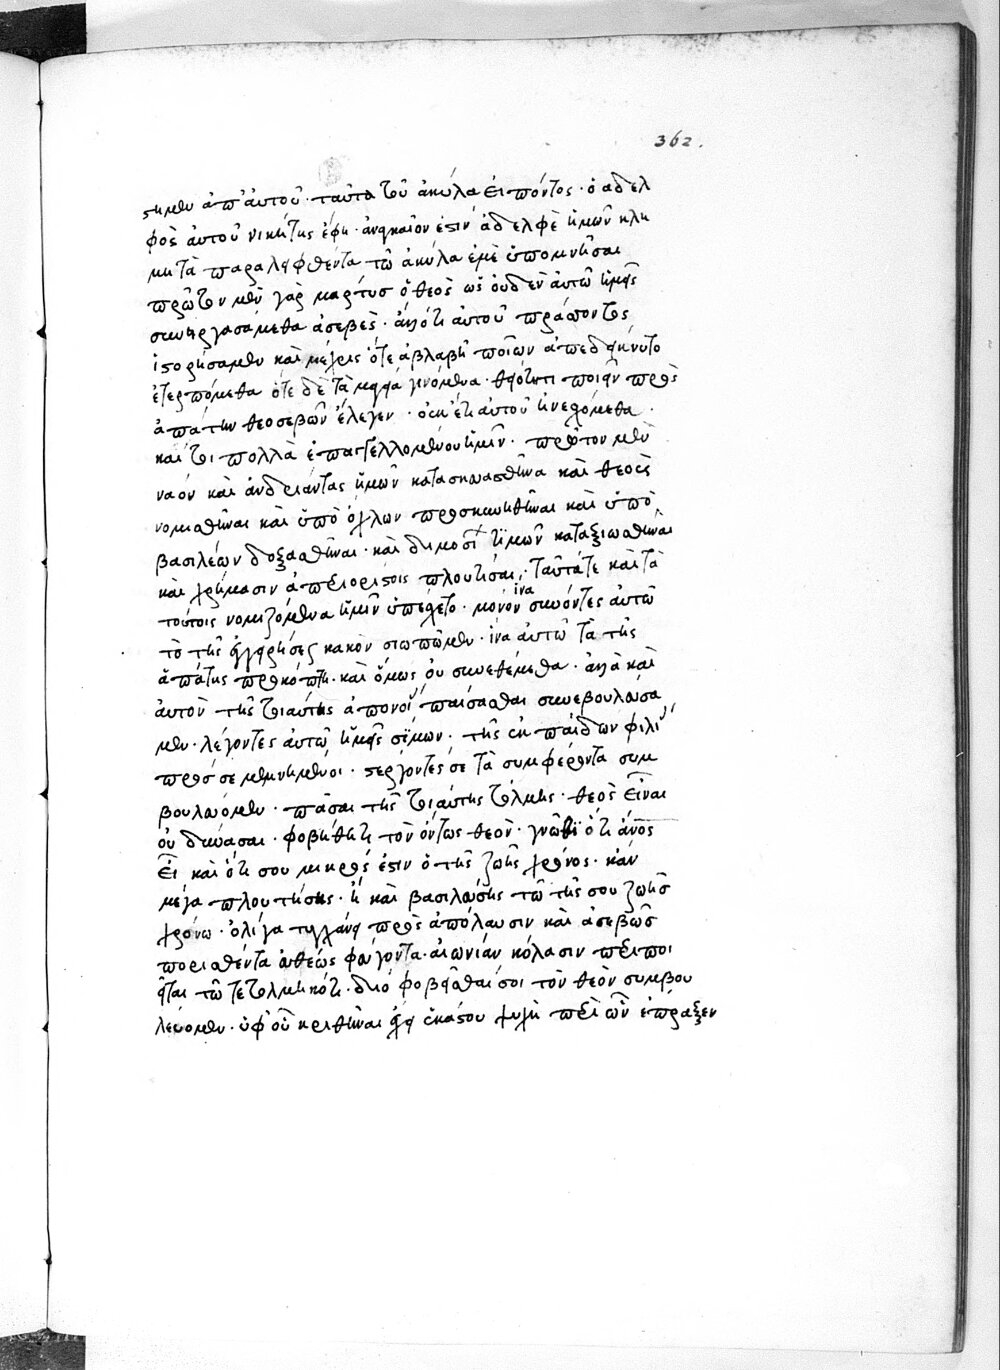 362.
στημεν ἀπ' αὐτοῦ · ταῦτα τοῦ ἀκύλα εἰπόντος · ὁ ἀδελ
φὸς αὐτοῦ νικήτης ἔφη · ἀναγκαῖόν ἐστιν ἀδελφὲ ἡμῶν κλή
μη τὰ παραλειφθέντα τῷ ἀκύλα ἐμὲ ὑπομνῆσαι
πρῶτον μὲν γὰρ μάρτυς ὁ θεὸς ὡς οὐδὲν αὐτῷ ἡμεῖς
συνεργασάμεθα ἀσεβὲς · ἀλλ' ὅτι αὐτοῦ πράττοντος
ἱστορήσαμεν καὶ μέχρις ὅτε ἀβλαβῆ ποιῶν ἀπεδείκνυτο
ἐτερπόμεθα ὅτε δὲ τὰ μαγεία γινόμενα · θεότητι ποιεῖν πρὸς
ἀπάτην θεοσεβῶν ἔλεγεν · οὐκ ἔτι αὐτοῦ ἠνεχόμεθα ·
καί τοι πολλὰ ἐπαγγελλομένου ἡμῖν · πρῶτον μὲν
ναὸν καὶ ἀνδριάντας ἡμῶν κατασκευασθῆναι καὶ θεοὺς
νομισθῆναι καὶ ὑπὸ ὄχλων προσκυνηθῆναι καὶ ὑπὸ
βασιλέων δοξασθῆναι · καὶ δημοσί ἡμῶν καταξιωθῆναι
καὶ χρήμασιν ἀπεριορίστοις πλουτῆσαι · ταῦτά τε καὶ τὰ
τούτοις νομιζόμενα ἡμῖν ὑπέσχετο · μόνον ἵνα συνόντες αὐτῷ
τὸ τῆς ἐγχειρήσεως κακὸν σιωπῶμεν · ἵνα αὐτῷ τὰ τῆς
ἀπάτης προκόπτῃ · καὶ ὅμως οὐ συνεθέμεθα · ἀλλὰ καὶ
αὐτὸν τῆς τοιαύτης ἀπονοί παύσασθαι συνεβουλεύσα
μεν · λέγοντες αὐτῷ ἡμεῖς σίμων · τῆς ἐκ παίδων φιλί
πρός σε μεμνημένοι · στέργοντές σε τὰ συμφέροντα συμ
βουλεύομεν · παῦσαι τῆς τοιαύτης τόλμης · θεὸς εἶναι
οὐ δύνασαι · φοβήθητι τὸν ὄντως θεὸν · γνῶθι ὅτι ἄνος
εἶ καὶ ὅτι σου μικρός ἐστιν ὁ τῆς ζωῆς χρόνος · κἂν
μέγα πλουτήσῃς · ἢ καὶ βασιλεύσῃς τῷ τῆς σου ζωῆς
χρόνω · ὀλίγα τυγχάνει πρὸς ἀπόλαυσιν καὶ ἀσεβῶς
πορισθέντα ἀθέως φεύγοντα · αἰωνίαν κόλασιν περιποι
εῖται τῷ τετολμηκότι · διὸ φοβεῖσθαί σοι τὸν θεὸν συμβου
λεύομεν · ὑφ' οὗ κριθῆναι ἔχει ἑκάστου ψυχὴ περὶ ὧν ἔπραξεν